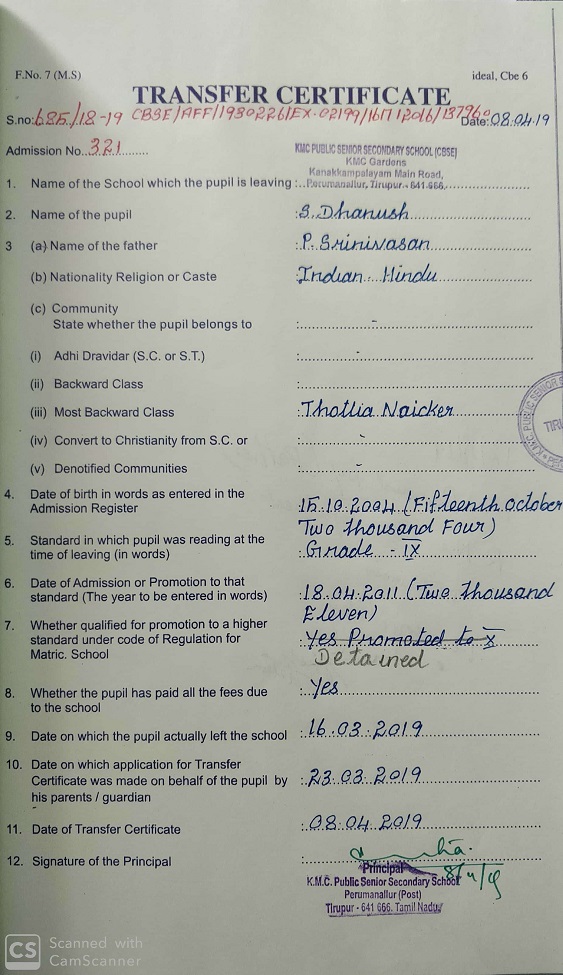 F.No. 7 (M.S)
ideal, Cbe 6
TRANSFER CERTIFICATE
S.no: 685/18-19 CBSE/AFF/1930226/EX-02199/1617/2016/13796 Date: 08.04.19
Admission No. 321
KMC PUBLIC SENIOR SECONDARY SCHOOL (CBSE)
KMC Gardens
Kanakkampalayam Main Road,
1. Name of the School which the pupil is leaving : Perumanallur, Tirupur - 641 666.
2. Name of the pupil : S. Dhanush
3 (a) Name of the father : P. Srinivasan
(b) Nationality Religion or Caste : Indian Hindu
(c) Community
State whether the pupil belongs to : -
(i) Adhi Dravidar (S.C. or S.T.) : -
(ii) Backward Class :
(iii) Most Backward Class : Thottia Naicker
(iv) Convert to Christianity from S.C. or : -
(v) Denotified Communities : -
4. Date of birth in words as entered in the
Admission Register : 15.10.2004 (Fifteenth October
Two thousand Four)
5. Standard in which pupil was reading at the
time of leaving (in words) : Grade - IX
6. Date of Admission or Promotion to that
standard (The year to be entered in words) : 18.04.2011 (Two thousand
Eleven)
7. Whether qualified for promotion to a higher
standard under code of Regulation for : Yes Promoted to X
Matric. School Detained
8. Whether the pupil has paid all the fees due : Yes
to the school
9. Date on which the pupil actually left the school : 16.03.2019
10. Date on which application for Transfer
Certificate was made on behalf of the pupil by : 23.03.2019
his parents / guardian
11. Date of Transfer Certificate : 08.04.2019
12. Signature of the Principal :
8/4/19
Principal
K.M.C. Public Senior Secondary School
Perumanallur (Post)
Tirupur - 641 666. Tamil Nadu
K.M.C. PUBLIC SENIOR
CS Scanned with
CamScanner